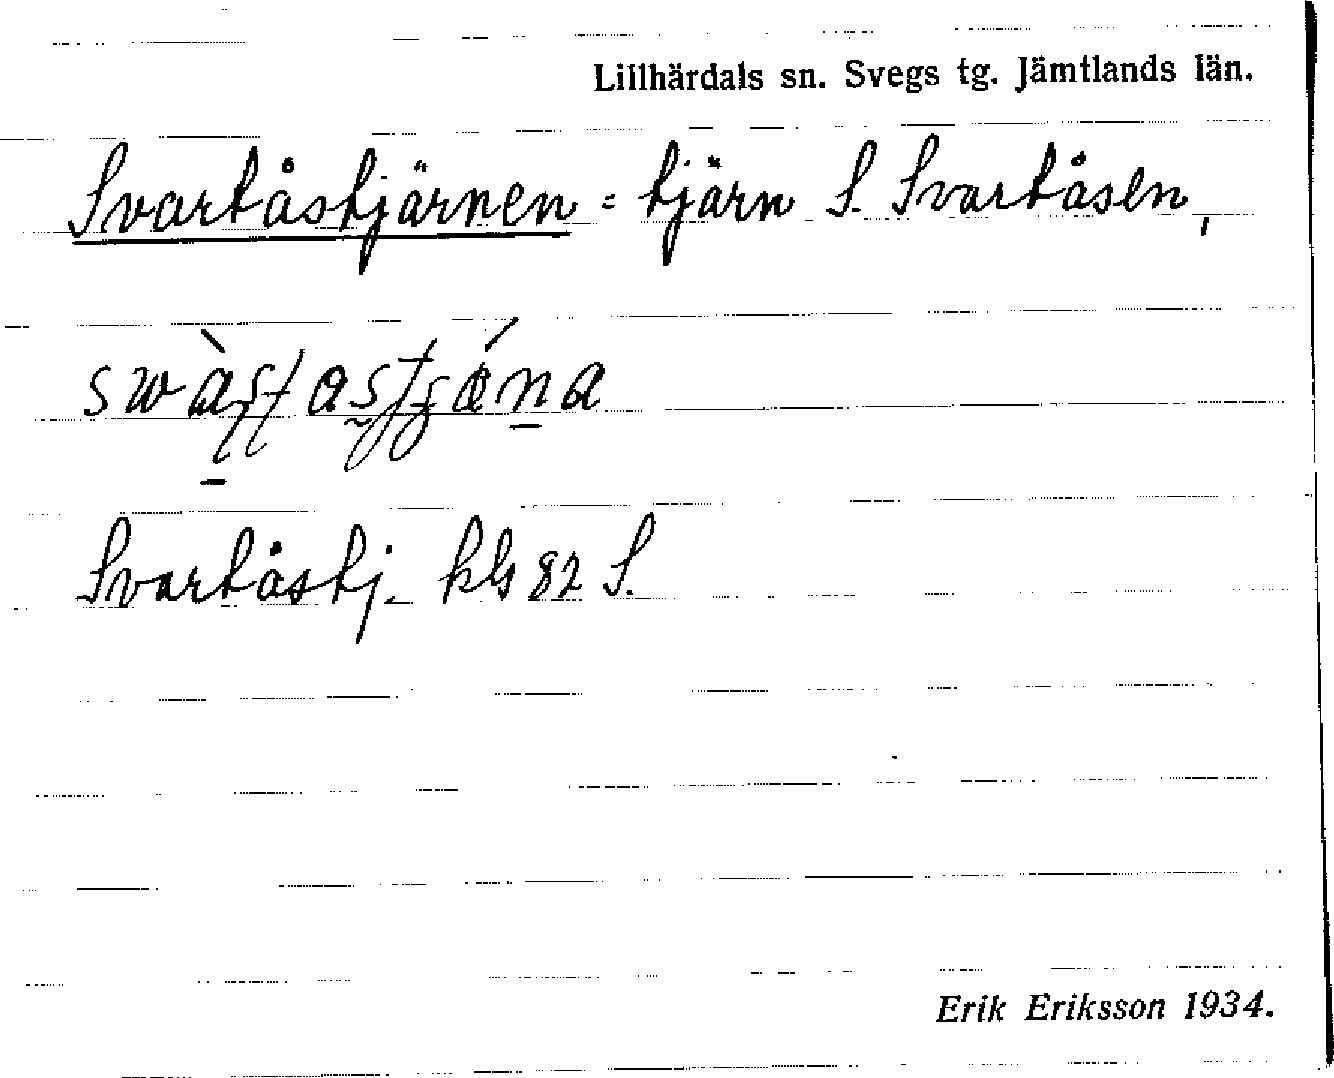 Lillhärdals sn. Svegs tg. Jämtlands län.
Svartåstjärnen = tjärn S. Svartåsen,
Svartåstj. kbl 82 S.
Erik Eriksson 1934.